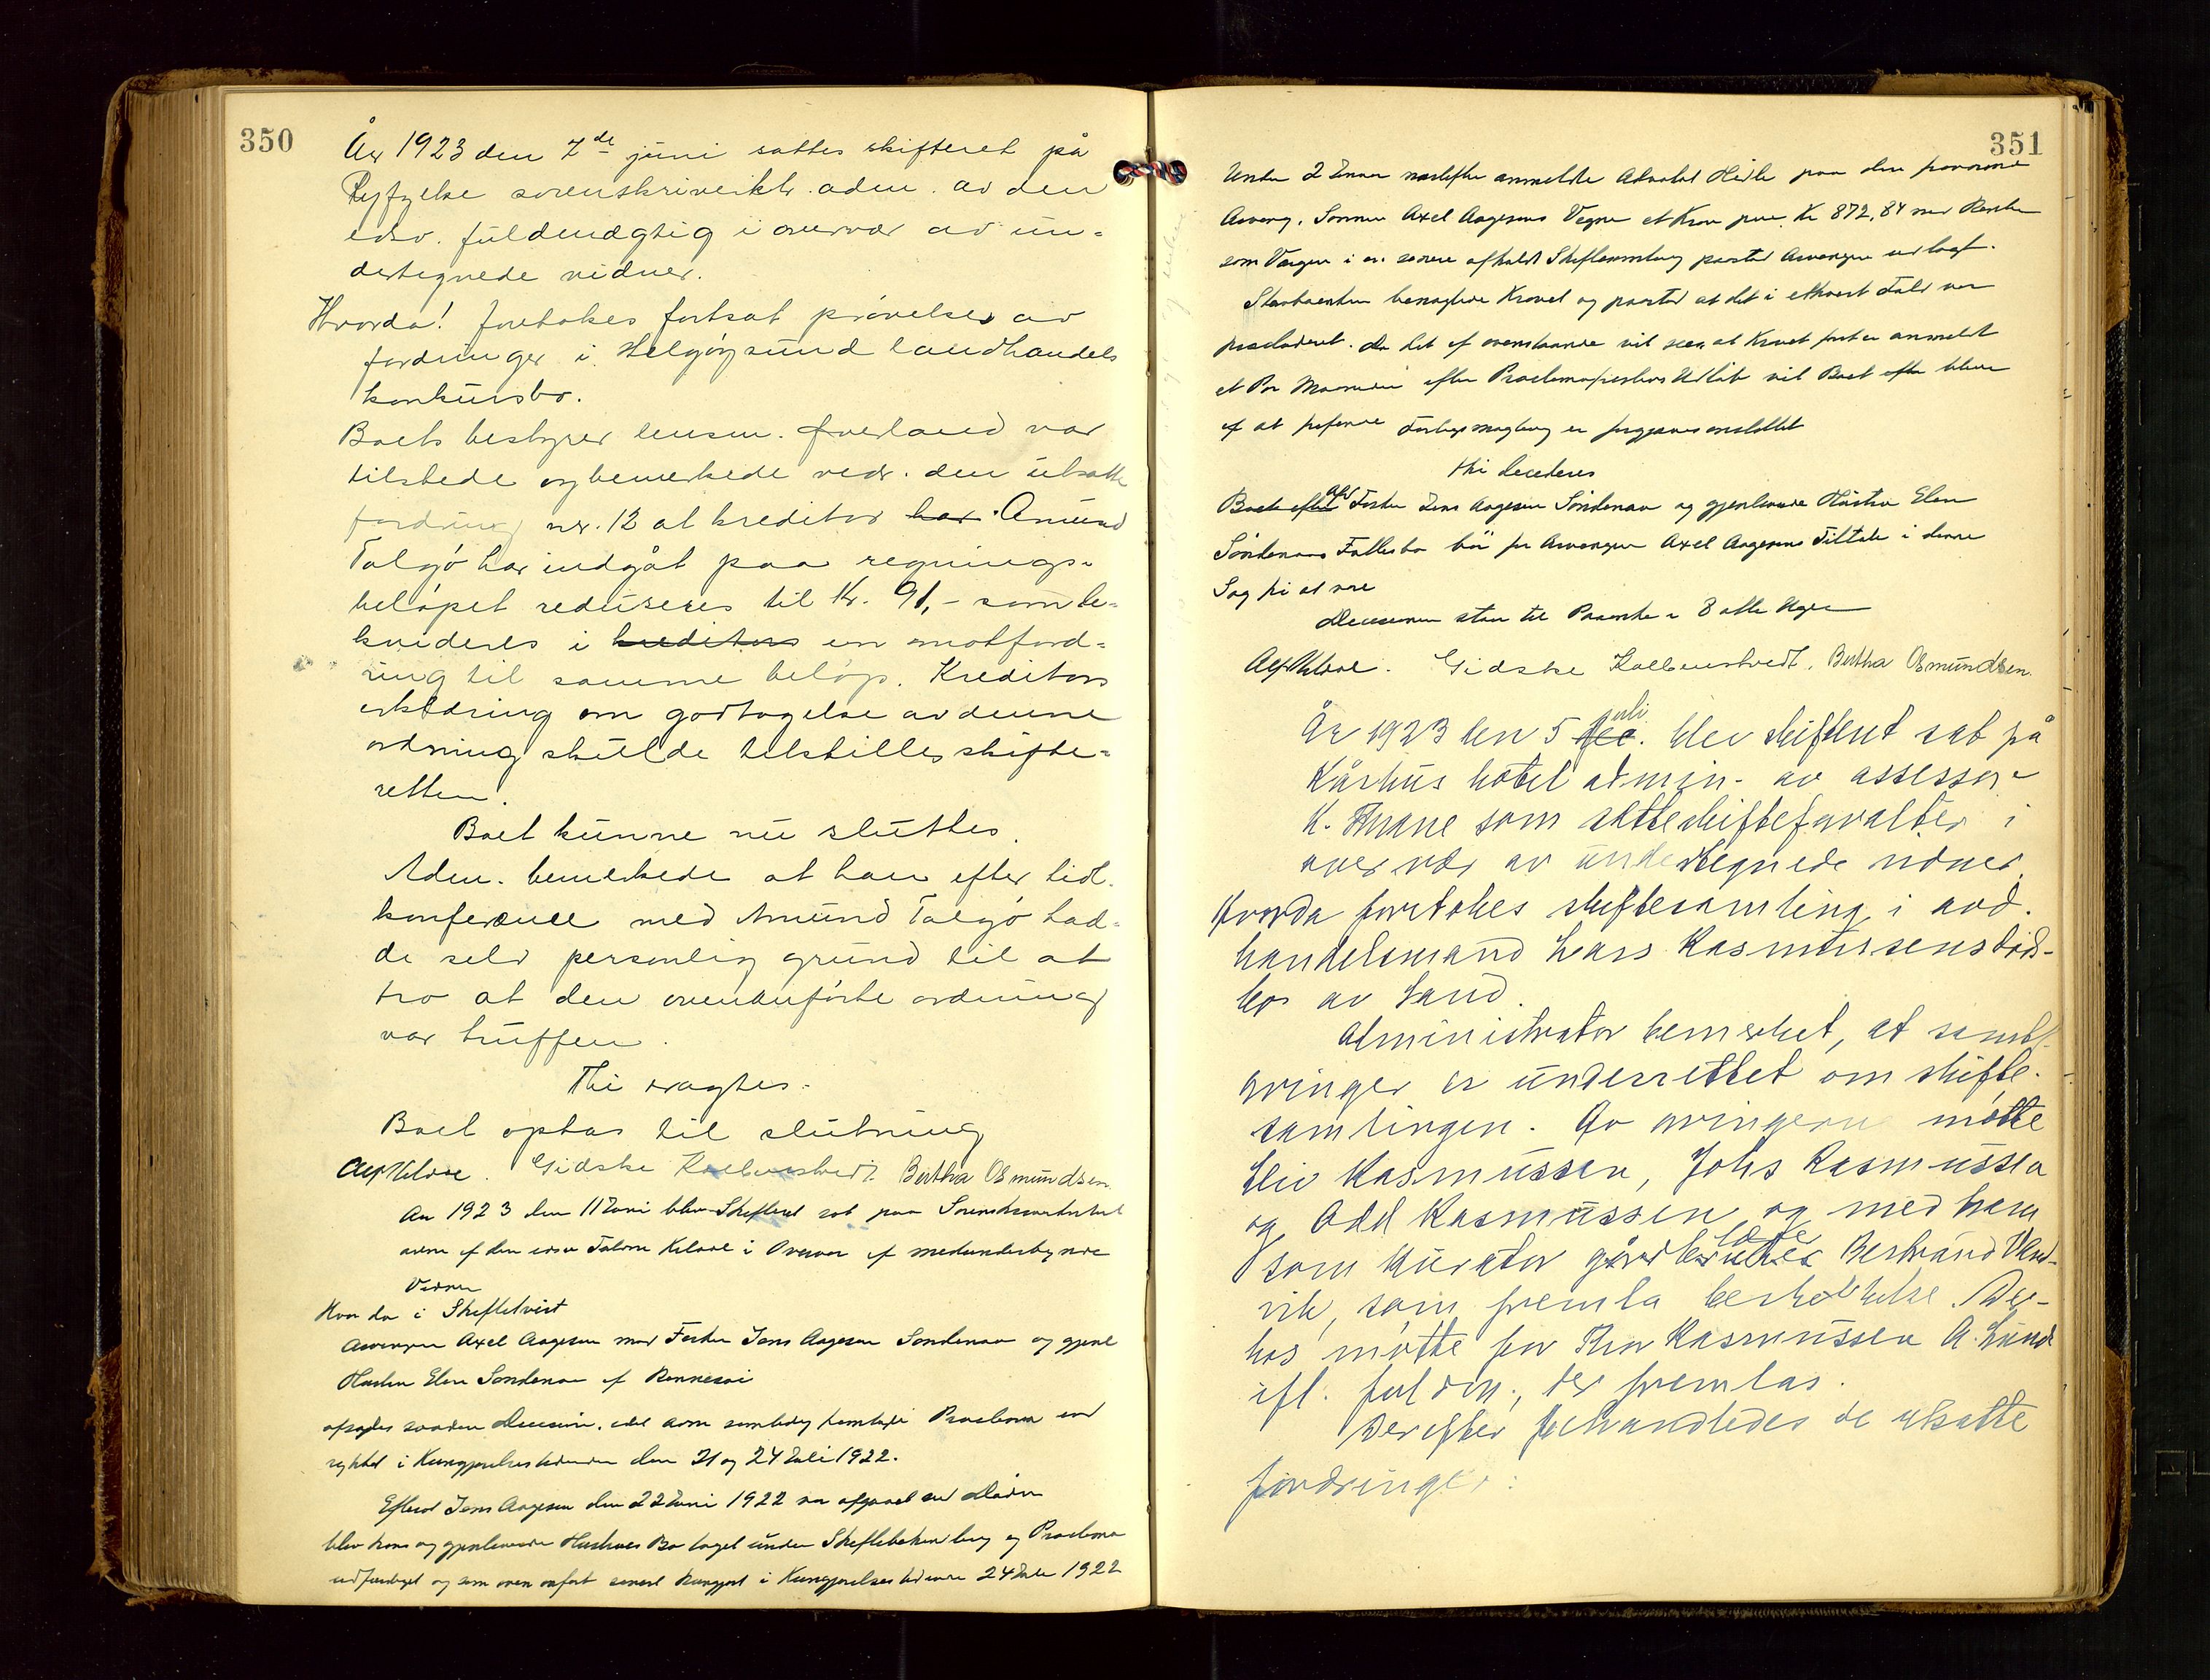 350
År 1923 den 7de juni sattes skifteret på
Ryfylke sorenskriverktr. adm. av den
edsv. fuldmægtig i overvær av un-
dertegnede vidner.
Hvorda! foretokes fortsat prövelse av
fordringer i Helgöysund landhandels
konkursbo.
Boets bestyrer lensm. Överland var
tilstede og bemerkede vedr. den utsatte
fordring nr. 12 at kreditor har Amund
Talgö har indgåt paa regnings-
belöpet reduseres til Kr. 91,- som li-
kvideres i kreditors en motford-
ring til samme belöp. Kreditors
erklæring om godtagelse av denne
ordning skulde tilstilles skifte-
retten.
Boet kunne nu sluttes.
Adm. bemerkede at han efter tidl.
konferance med Amund Talgö had-
de selv personlig grund til at
tro at den ovenanförte ordning
var truffen.
Thi eragtes:
Boet optas til slutning
Alf Kelove. Gidske Kolbenstvedt. Bertha Osmundsen.
Aar 1923 den 11 Juni blev Skifteret sat paa Sorenskriverkontoret
adm af den edsv Fuldm Kelove i Overvær af medundertegnede
Vidner
Hvor da i Skiftetvist
Arvingen Axel Aagesen mod Fester Jens Aagesen Söndenaa og gjenl
Hustru Elen Söndenaa af Rennesöi
afsagdes saadan Decision. idet adm samtidig fremlagde Proclama ind
rykket i Kungjörelsestidende den 21 og 24 Juli 1922.
Efterat Jens Aagesen den 22 Juni 1922 var afgaaet ved Döden
blev hans og gjenlevende Hustrues Bo taget under Skiftebehandling og Proclama
udfærdiget og som oven anfört senest kungjort i Kungjörelsestidende 24 Juli 1922
351
Under 2 Januar næstefter anmeldte Advokat Heile paa den
Arving, Sönnen Axel Aagesens Vegne et Krav paa Kr 872,84 med Renter
som Vægen i en senere afholdt Skiftesamling paastod Arvingen
benægtede Kravet og paastod at det i ethvert Fald var
præcluderet. Da det af ovenstaaende vil sees at Kravet först er anmeldt
et Par Maaneder efter Proclamafristens Udlöb vil Boet efter blive
af at frifinde Forligsmægling er forgjæves anstillet
thi decideres
Boet efter afd Fester Jens Aagesen Söndenaa og gjenlevende Hustru Elen
Söndenaas Fællesbo bör for Arvingen Axel Aagesens Tiltale i denne
Sag fri at være
Decisionen staar til Paaanke i 8 otte Uger
Alf Kelove. Gidske Kolbenstvedt. Bertha Osmundsen.
År 1923 den 5 dec. juli blev skifteret sat på
Kårhus hotel admin. av assessor
K. Thrane som sætteskifteforvalter i
overvær av undertegnede vidner
Hvorda foretokes skiftesamling i avd.
handelsmand Lars Rasmussens döds-
bo av Sand.
Administrator bemerket, at samtl.
arvinger er underrettet om skifte-
samlingen. Av arvingerne mötte
Eliv Rasmussen, Johs Rasmussen
og Odd Rasmussen og med ham
som kurator gårdbruker Bertrand Vand-
vik, som fremla beskikkelse. Des-
hos mötte for Thor Rasmussen A. Lunde
ifl. fuldm., der fremlas.
Derefter behandledes de utsatte
fordringer: